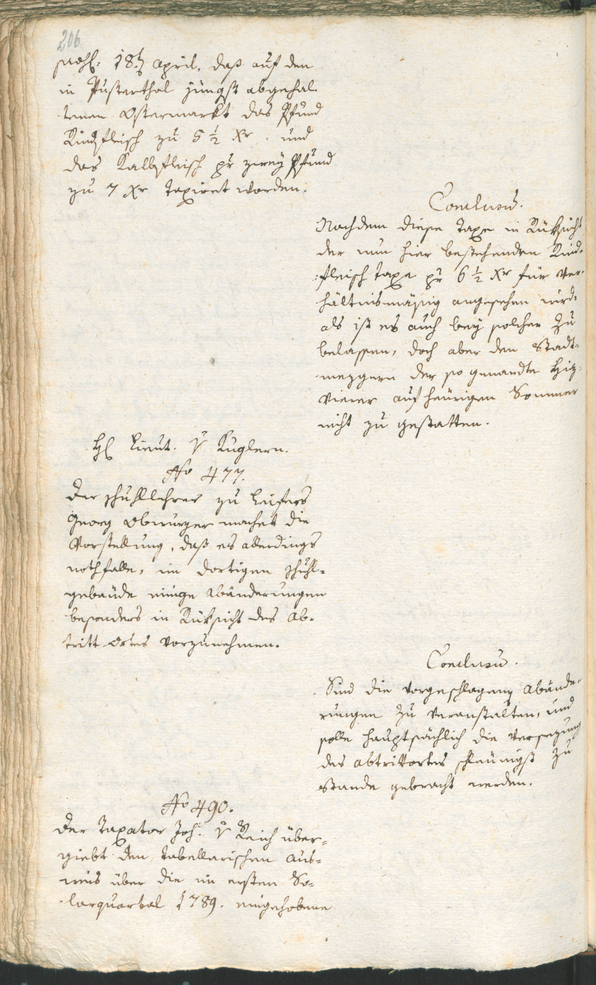 206
18t April, daß auf den
in Pusterthal jüngst abgehal-
tenen Ostermarkt das Pfund
Rindfleisch zu 5 ½ xr. und
das Kalbfleisch pr zwey Pfund
zu 7 xr Taxiret worden.
Conclusum.
Nachdem diese Taxe in Rüksicht
der nun hier bestehenden Rind-
fleisch taxe pr 6 ½ xr für ver-
hältnismäßig angesehen wird,
als ist es auch bey solcher zu
belassen, doch aber den Stadt-
mezgern der so genandte
auf heurigen Sommer
nicht zu gestatten.
H Lieut. v Kuglern.
No 477.
Der schuhllehrer zu Lüsens
Georg Obwurzer machet die
Vorstellung, daß es allerdings
nothfalle, im dortigen schuhl-
gebäude einige Abänderungen
besonders in Rüksicht des Ab-
tritt Ortes vorzunehmen.
Conclusum.
Sind die vorgeschlagene Abände-
rungen zu veranstalten, und
solle hauptsächlich die versezung
des abtrittortes schleunigst zu
stande gebracht werden.
No 490.
Der Taxator Joh: v Reich über-
giebt den tabellarischen Aus-
weis über die im ersten So-
larquartal 1789. eingehobene